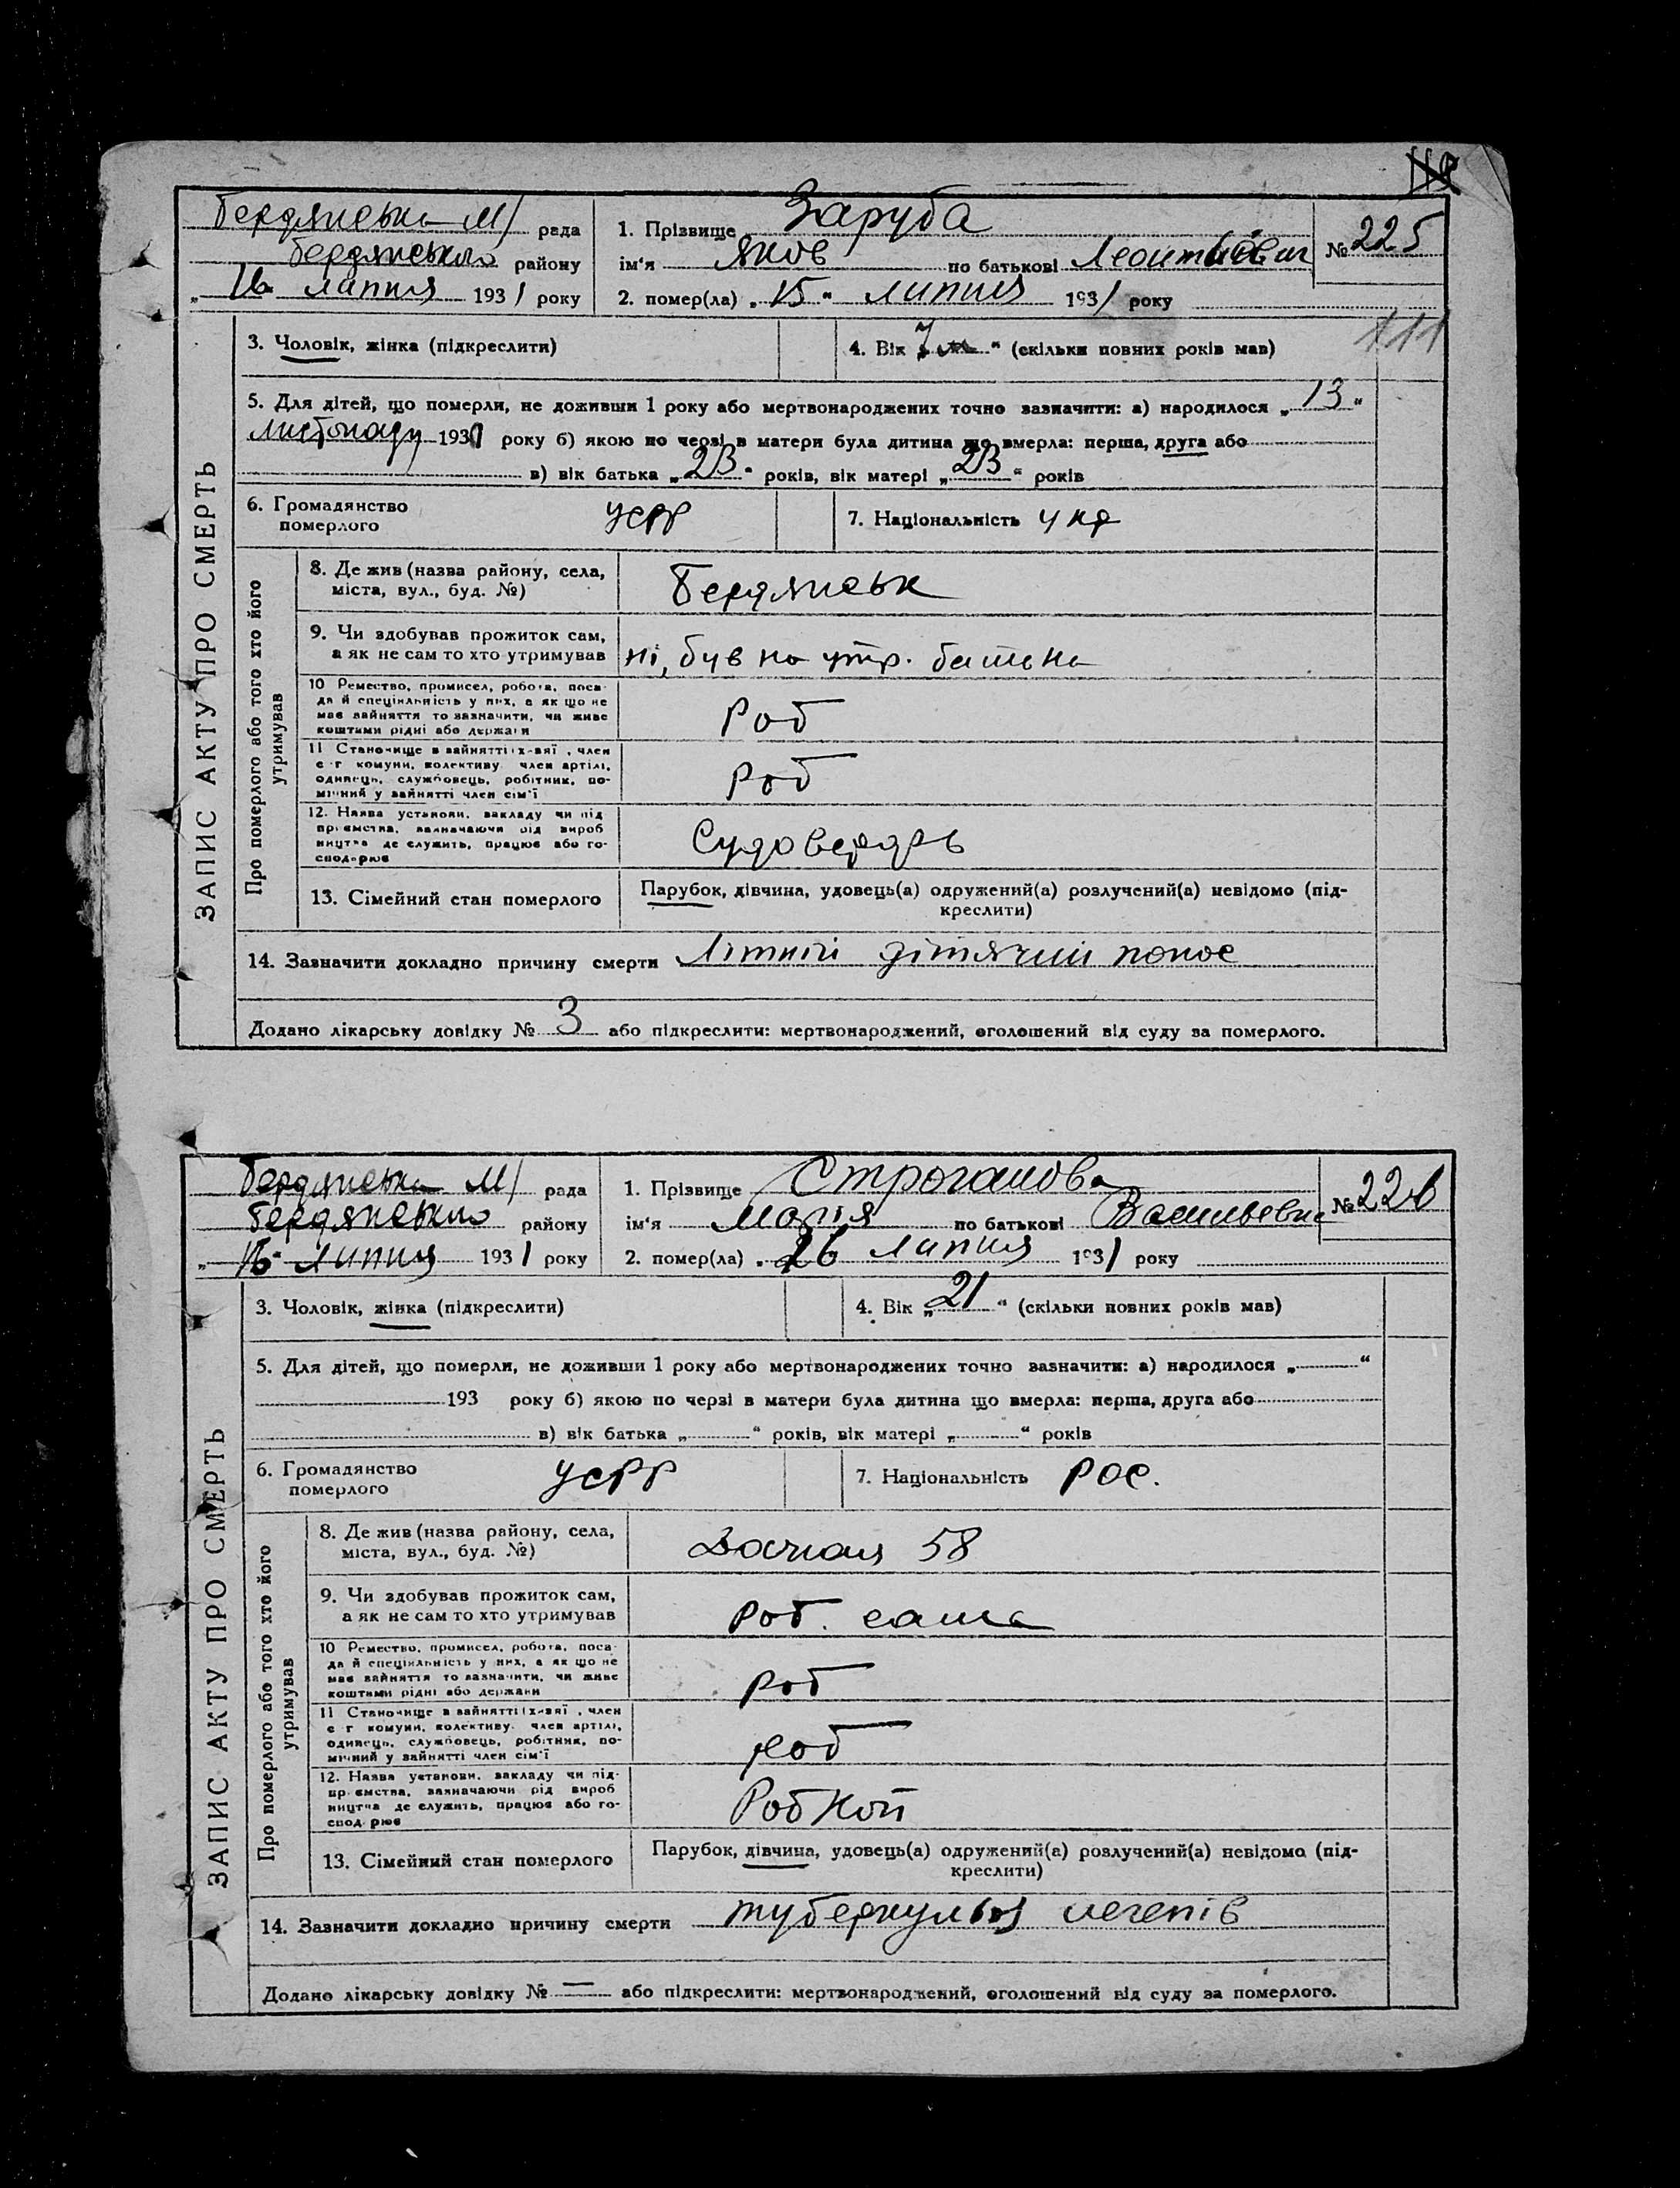 225
Бердянська М/ рада
1. Прізвище Заруба
№ 225
Бердянського району
ім'я Яков по батькові Леонтьевич
„16 липня 1931 року
2. помер(ла) „15“ липня 1931 року
111
3. Чоловік, жінка (підкреслити)
4. Вік „7 м“ (скільки повних років мав)
5. Для дітей, що померли, не доживши 1 року або мертвонароджених точно зазначити: а) народилося „13“
листопаду 193 року б) якою по черзі в матери була дитина що вмерла: перша, друга або
в) вік батька „23“ років, вік матері „23“ років
6. Громадянство померлого УСРР
7. Національність укр
ЗАПИС АКТУ ПРО СМЕРТЬ
Про померлого або того хто його утримував
8. Де жив (назва району, села,
міста, вул., буд. №)
Бердянськ
9. Чи здобував прожиток сам,
а як не сам то хто утримував
ні, був на утр. батька
10 Ремество, промисел, робота, поса-
да й спеціяльність у них, а як що не
має зайняття то зазначити, чи живе
коштами рідні або держави
Роб
11 Становище в зайнятті: х-вяї, член
с-г комуни, колективу, член артілі,
одинець, службовець, робітник, по-
мічний у зайнятті член сім'ї
Роб
12. Назва установи, закладу чи під-
приємства, зазначаючи рід вироб
ництва де служить, працює або го-
сподарює
Судоверфь
13. Сімейний стан померлого
Парубок, дівчина, удовець(а) одружений(а) розлучений(а) невідомо (під-
креслити)
14. Зазначити докладно причину смерти Літній дітячий понос
Додано лікарську довідку № 3 або підкреслити: мертвонароджений, оголошений від суду за померлого.
Бердянська М/ рада
1. Прізвище Строганова
№ 226
Бердянського району
ім'я Марія по батькові Васильевна
„16“ липня 1931 року
2. помер(ла) „16 липня 1931 року
3. Чоловік, жінка (підкреслити)
4. Вік „21“ (скільки повних років мав)
5. Для дітей, що померли, не доживши 1 року або мертвонароджених точно зазначити: а) народилося „ “
193 року б) якою по черзі в матери була дитина що вмерла: перша, друга або
в) вік батька „ “ років, вік матері „ “ років
6. Громадянство померлого УСРР
7. Національність рос.
ЗАПИС АКТУ ПРО СМЕРТЬ
Про померлого або того хто його утримував
8. Де жив (назва району, села,
міста, вул., буд. №)
58
9. Чи здобував прожиток сам,
а як не сам то хто утримував
роб. сама
10 Ремество, промисел, робота, поса-
да й спеціяльність у них, а як що не
має зайняття то зазначити, чи живе
коштами рідні або держави
роб
11 Становище в зайнятті: х-вяї, член
с-г комуни, колективу, член артілі,
одинець, службовець, робітник, по-
мічний у зайнятті член сім'ї
роб
12. Назва установи, закладу чи під-
приємства, зазначаючи рід вироб
ництва де служить, працює або го-
сподарює
Робкоп
13. Сімейний стан померлого
Парубок, дівчина, удовець(а) одружений(а) розлучений(а) невідомо (під-
креслити)
14. Зазначити докладно причину смерти туберкульоз легенів
Додано лікарську довідку № — або підкреслити: мертвонароджений, оголошений від суду за померлого.